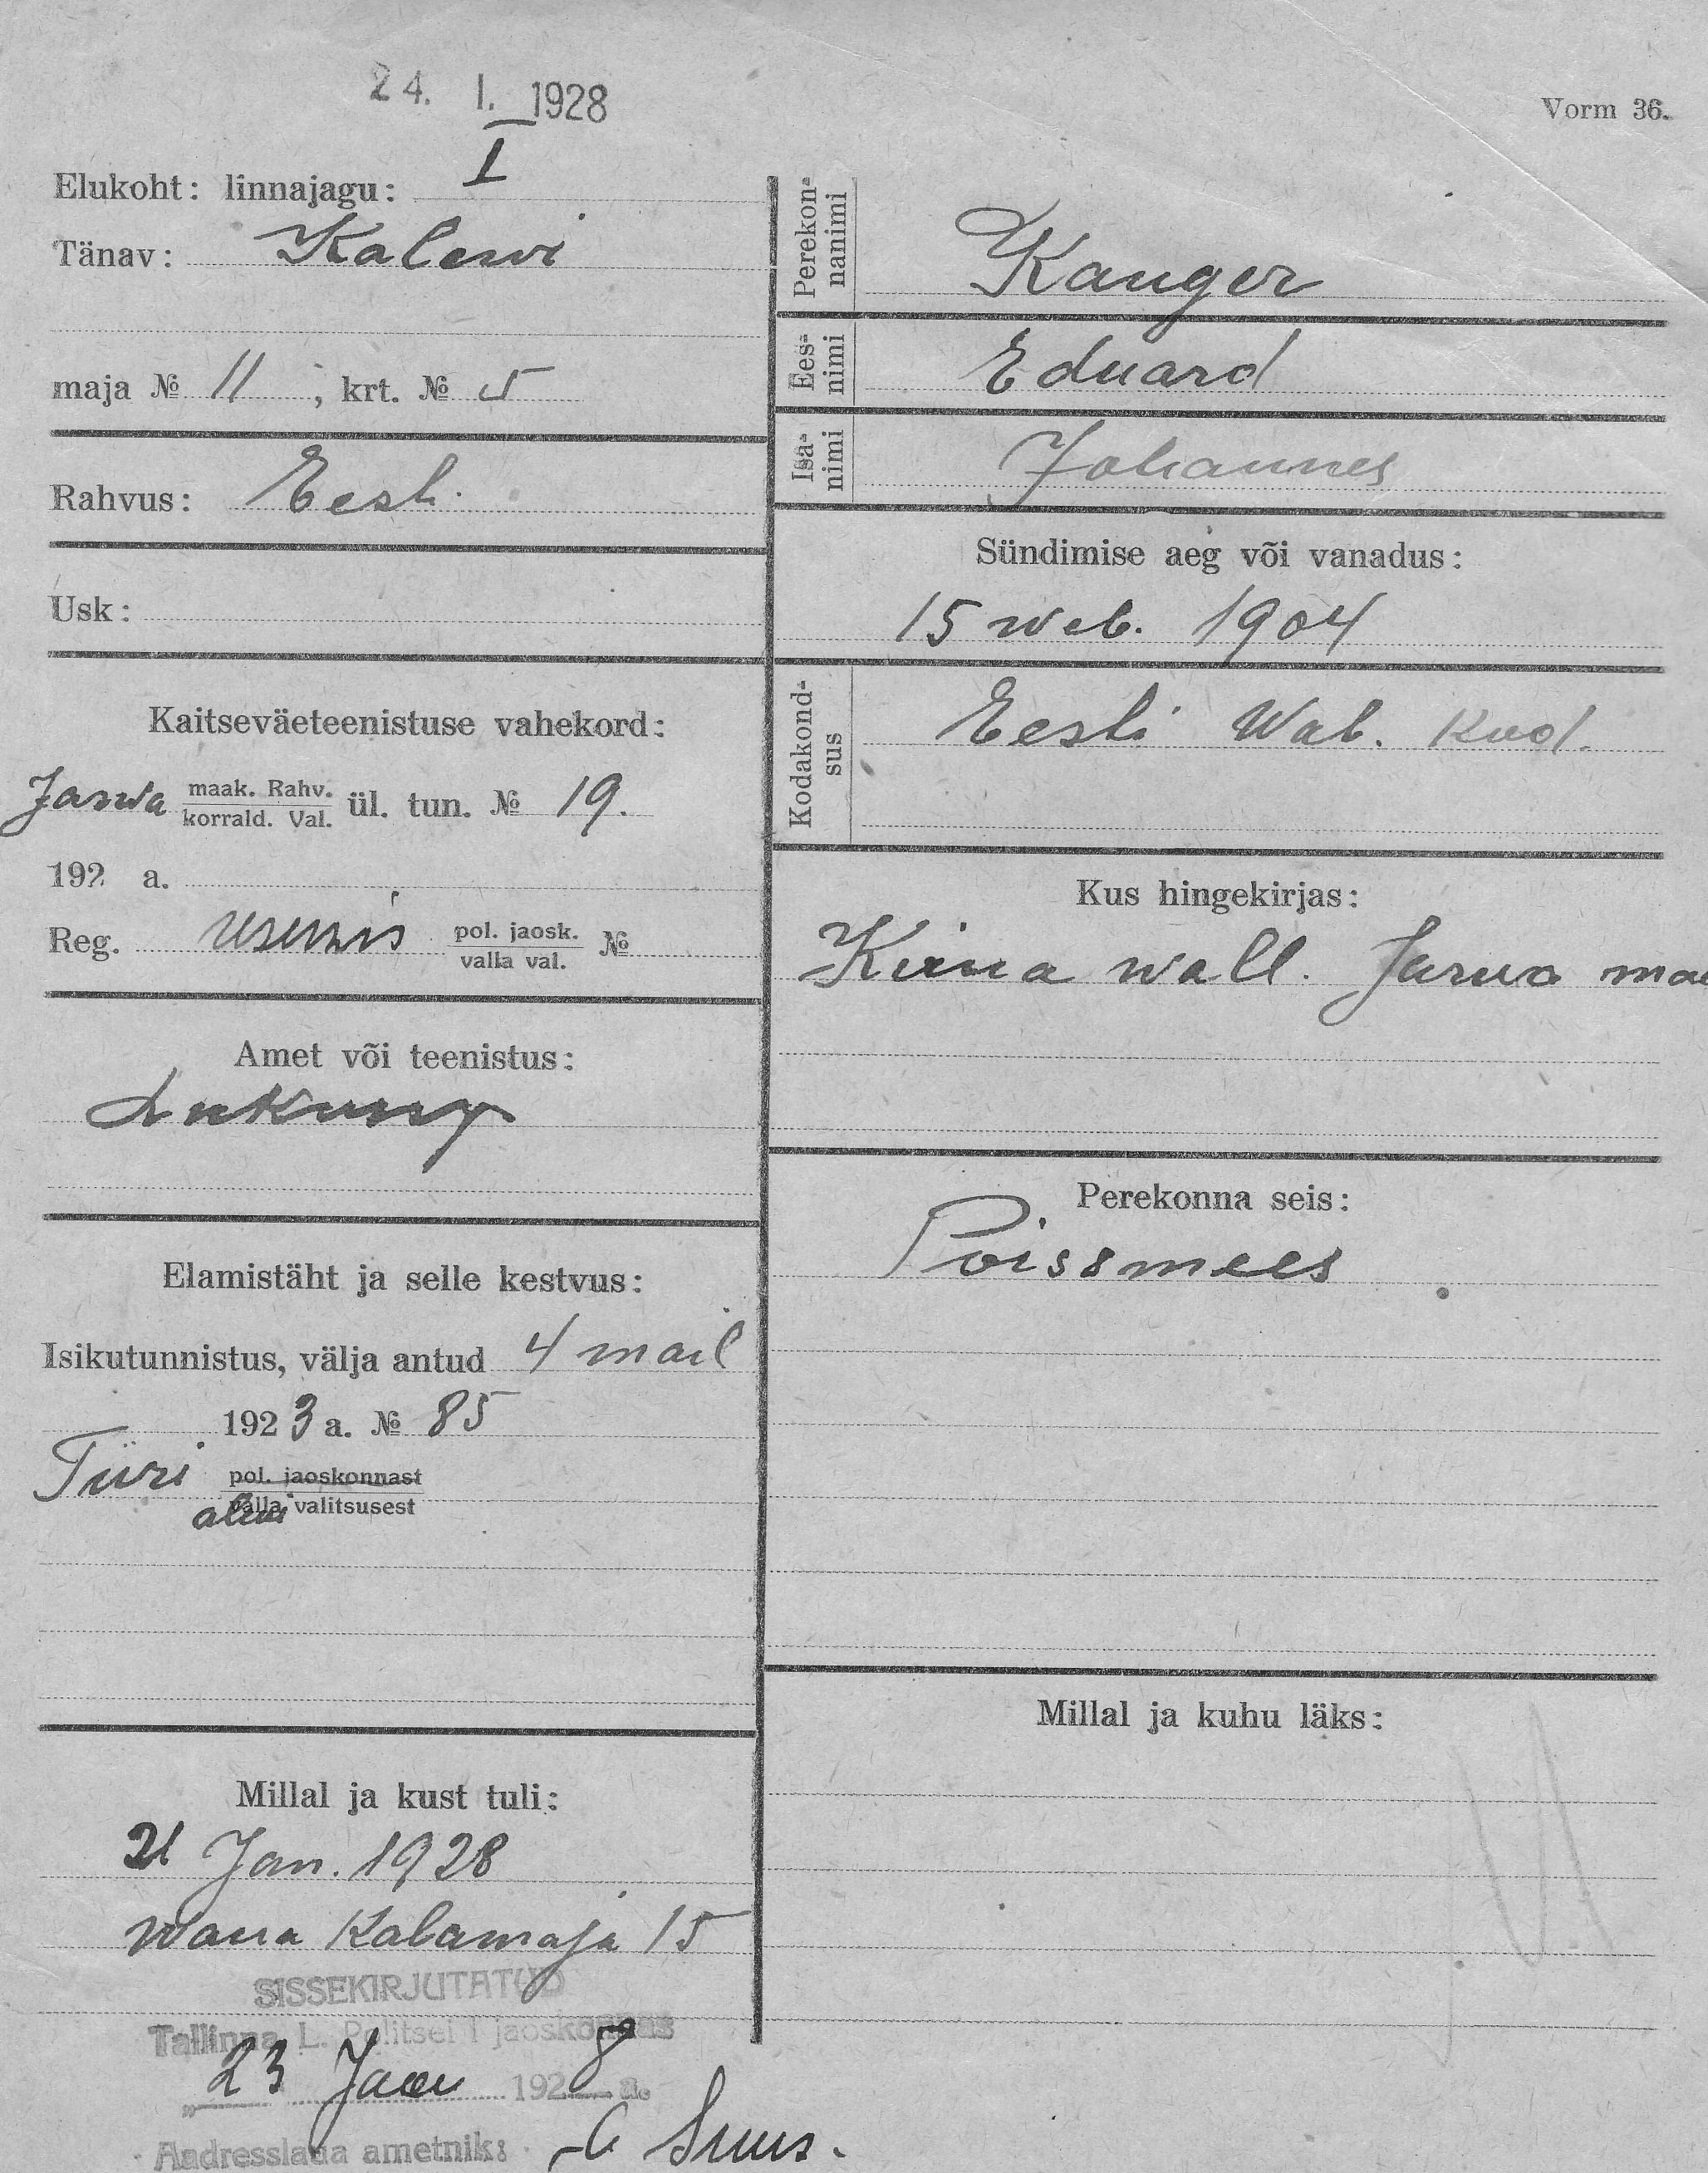 24. I. 1928
Vorm 36.
Elukoht: linnajagu: I
Tänav: Kalewi
maja № 11 ; krt. № 5
Rahvus: Eesti
Usk:
Kaitseväeteenistuse vahekord:
Jarwa maak. Rahv. korrald. Val. ül. tun. № 19.
192 a.
Reg. pol. jaosk. valla val. №
Amet või teenistus:
Elamistäht ja selle kestvus:
Isikutunnistus, välja antud 4 mail
1923 a. № 85
Türi pol. jaoskonnast
alevi valla valitsusest
Millal ja kust tuli:
21 Jan. 1928
wana Kalamaja 15
SISSEKIRJUTATUD
Tallinna L. Politsei I jaoskonnas
„23 Jaan 1928 a.
Aadresslaua ametnik:
Perekonnanimi
Kanger
Eesnimi
Eduard
Isanimi
Johannes
Sündimise aeg või vanadus:
15 web. 1904
Kodakondsus
Eesti Wab. Kod.
Kus hingekirjas:
wall. Jarwa maa
Perekonna seis:
Poissmees
Millal ja kuhu läks: